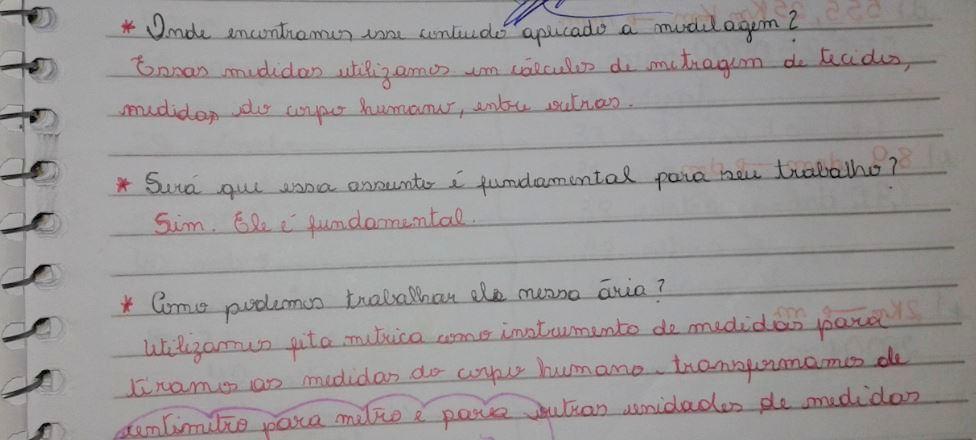 * Onde encontramos esse contuudo apricado a mudilagem?
Essas medidas utilizamos em cálculos de metragem de tecidos,
medidas do corpo humano, entre outras.
* Será que essa assunto é fundamental para seu trabalho?
Sim. Ele é fundamental.
* Como podemos trabalhar ele nessa ária?
Utilizamos fita metrica como instrumento de medidas para
tiramos as medidas do corpo humano. transformamos de
sentimetro para metro e para outras unidades de medidas.